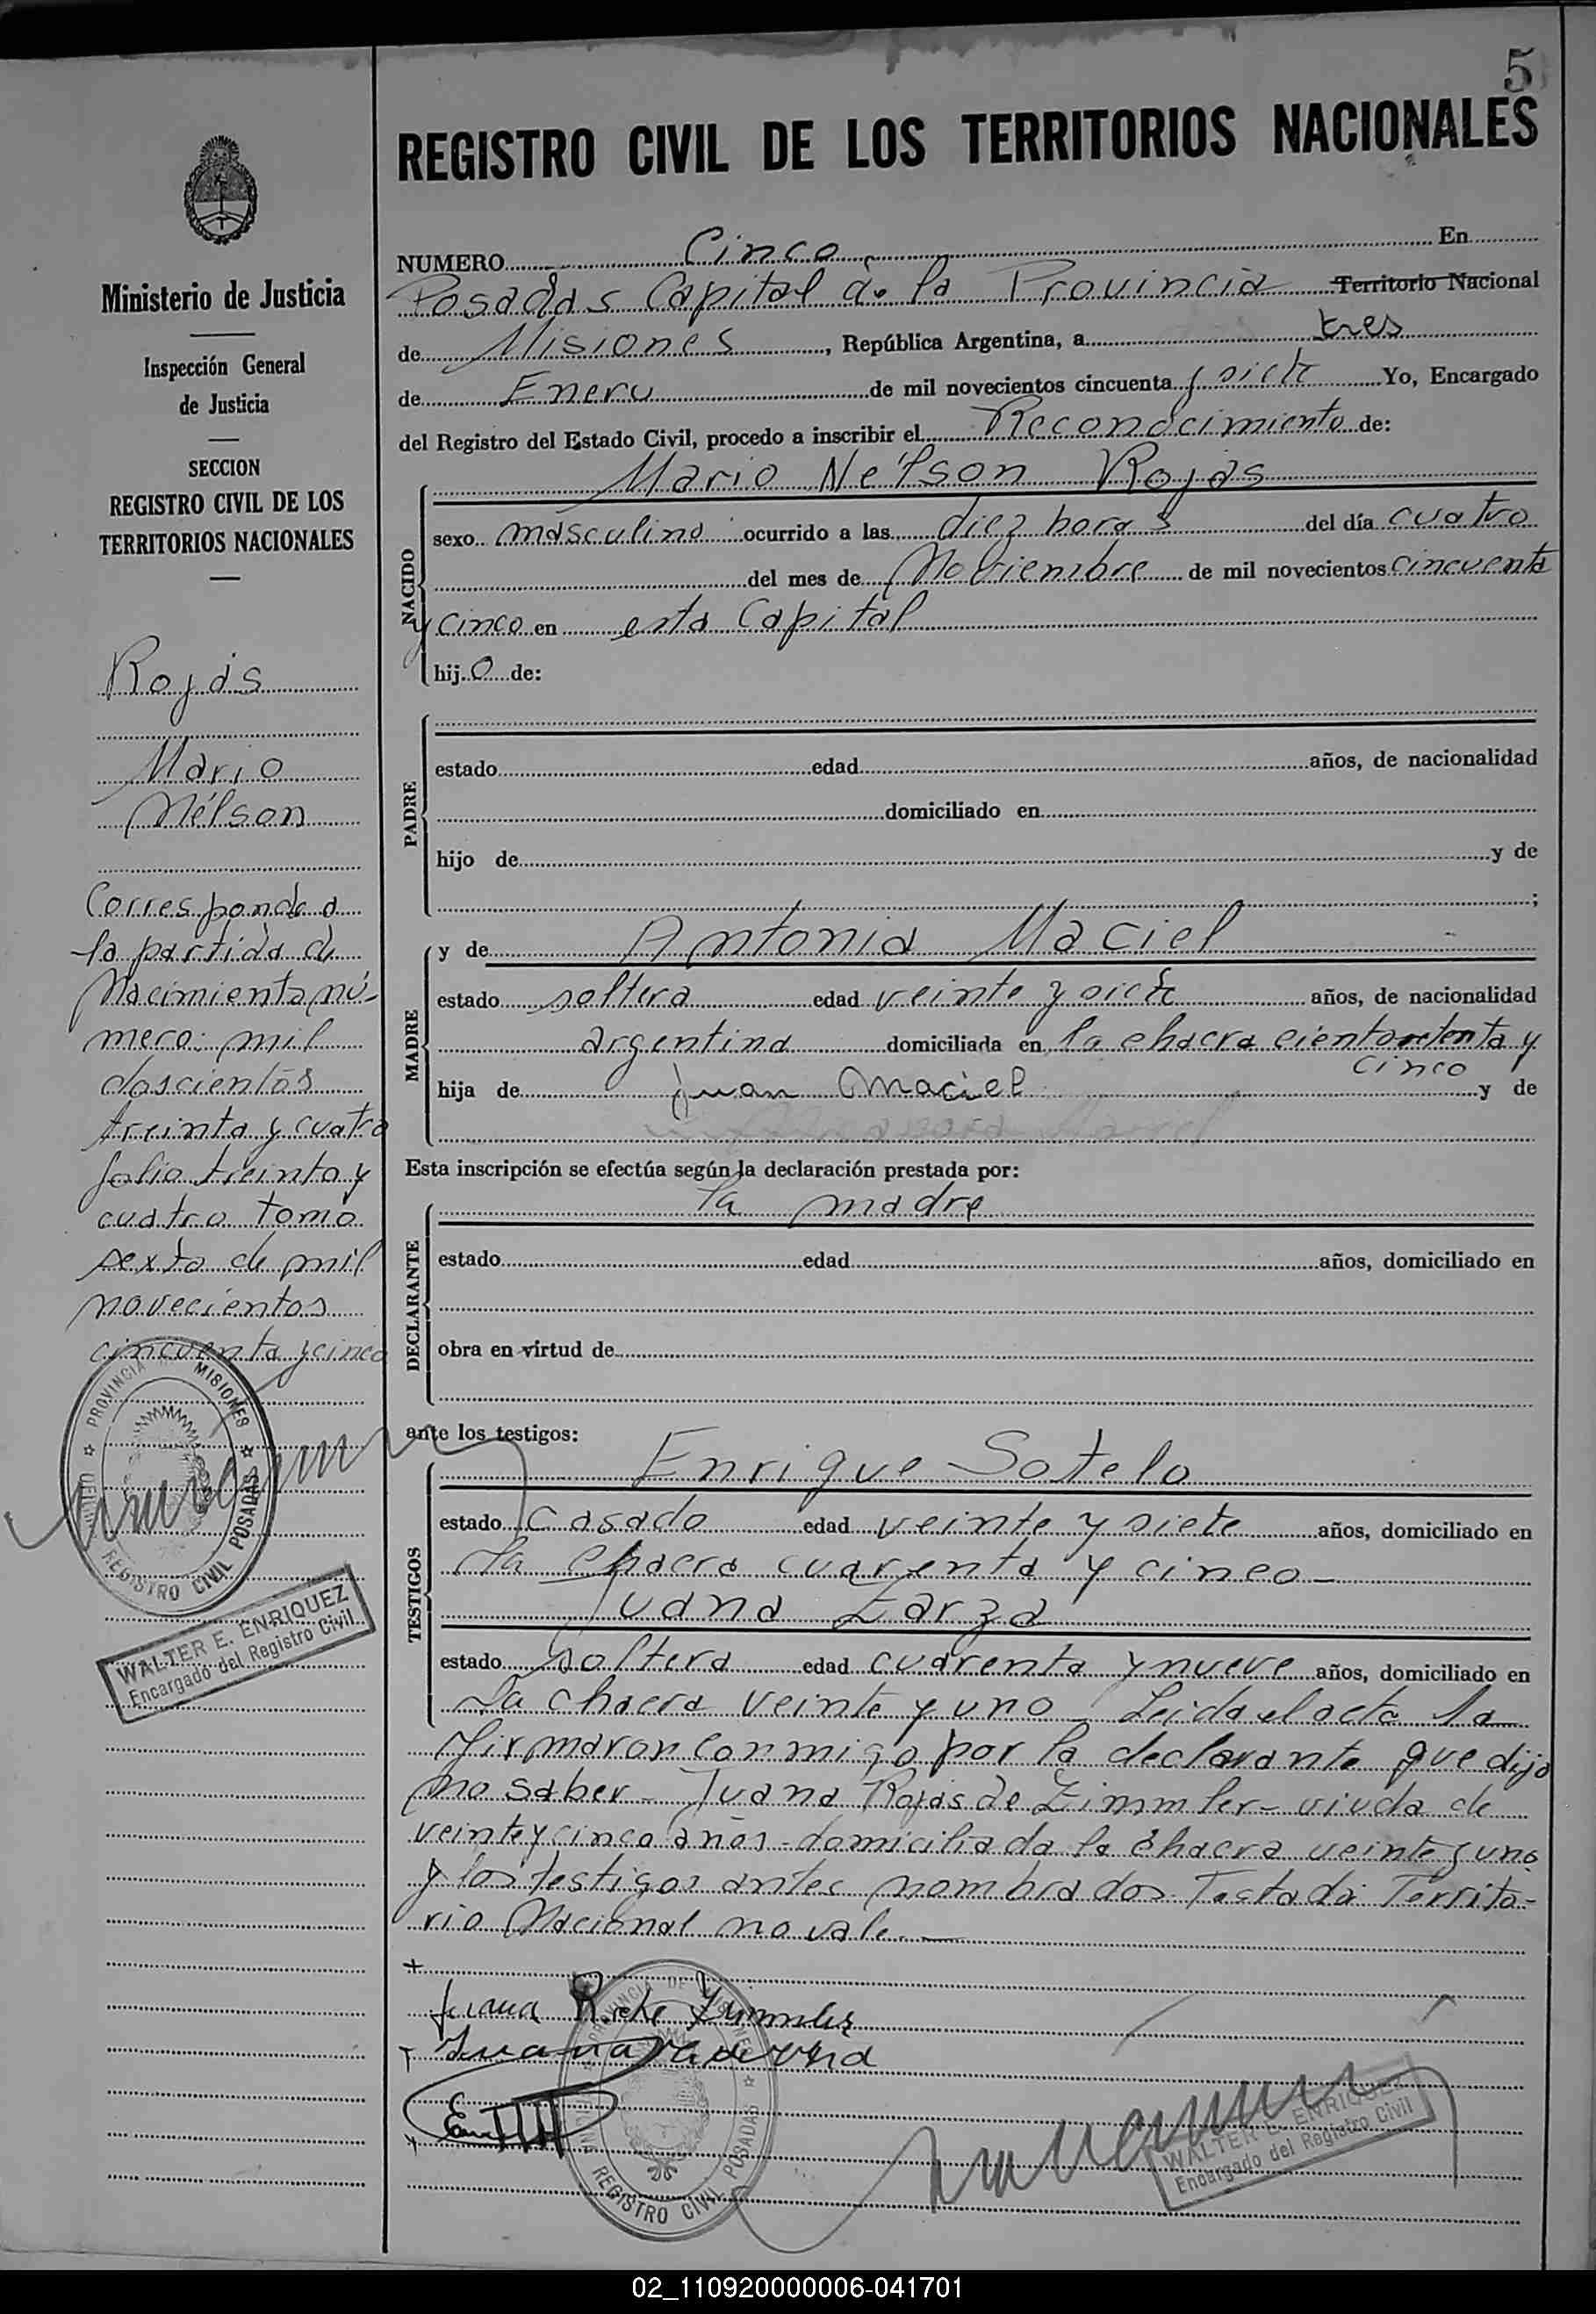 5
REGISTRO CIVIL DE LOS TERRITORIOS NACIONALES
Ministerio de Justicia
Inspección General
de Justicia
SECCION
REGISTRO CIVIL DE LOS
TERRITORIOS NACIONALES
Rojas
Mario
Nélson
Corresponde a
la partida de
Nacimiento nú-
mero: mil
doscientos
treinta y cuatro
folio treinta y
cuatro tomo
sexto de mil
novecientos
cincuenta y cinco
PROVINCIA MISIONES
REGISTRO CIVIL POSADAS
WALTER E. ENRIQUEZ
Encargado del Registro Civil
NUMERO Cinco En
Posadas Capital de la Provincia Territorio Nacional
de Misiones, República Argentina, a tres
de Enero de mil novecientos cincuenta y siete Yo, Encargado
del Registro del Estado Civil, procedo a inscribir el Reconocimiento de:
Mario Nélson Rojas
NACIDO
sexo masculino ocurrido a las diez horas del día cuatro
del mes de Noviembre de mil novecientos cincuenta
y cinco en esta Capital
hijo de:
PADRE
estado edad años, de nacionalidad
domiciliado en
hijo de y de
;
MADRE
y de Antonia Maciel
estado soltera edad veinte y siete años, de nacionalidad
argentina domiciliada en la chacra ciento setenta y
cinco
hija de Juan Maciel y de
Esta inscripción se efectúa según la declaración prestada por:
DECLARANTE
la madre
estado edad años, domiciliado en
obra en virtud de
ante los testigos:
TESTIGOS
Enrique Sotelo
estado casado edad veinte y siete años, domiciliado en
la chacra cuarenta y cinco-
Juana Zarza
estado soltera edad cuarenta y nueve años, domiciliado en
la chacra veinte y uno - Leida el acta la
firmaron conmigo por la declarante que dijo
no saber - Juana Rojas de Zimmler - viuda de
veinte y cinco años - domiciliada la chacra veinte y uno
y los testigos antes nombrados. Testado: Territo-
rio Nacional no vale.-
Juana
PROVINCIA DE MISIONES
REGISTRO CIVIL POSADAS
WALTER E. ENRIQUEZ
Encargado del Registro Civil
02_110920000006-041701